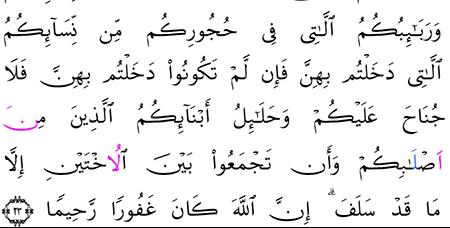 وَرَبَٰٓئِبُكُمُ ٱلَّٰتِى فِى حُجُورِكُم مِّن نِّسَآئِكُمُ
ٱلَّٰتِى دَخَلْتُم بِهِنَّ فَإِن لَّمْ تَكُونُوا۟ دَخَلْتُم بِهِنَّ فَلَا
جُنَاحَ عَلَيْكُمْ وَحَلَٰٓئِلُ أَبْنَآئِكُمُ ٱلَّذِينَ مِنَ
اَصْلَٰبِكُمْ وَأَن تَجْمَعُوا۟ بَيْنَ ٱلُاخْتَيْنِ إِلَّا
مَا قَدْ سَلَفَ ۗ إِنَّ ٱللَّهَ كَانَ غَفُورًا رَّحِيمًا ٢٣